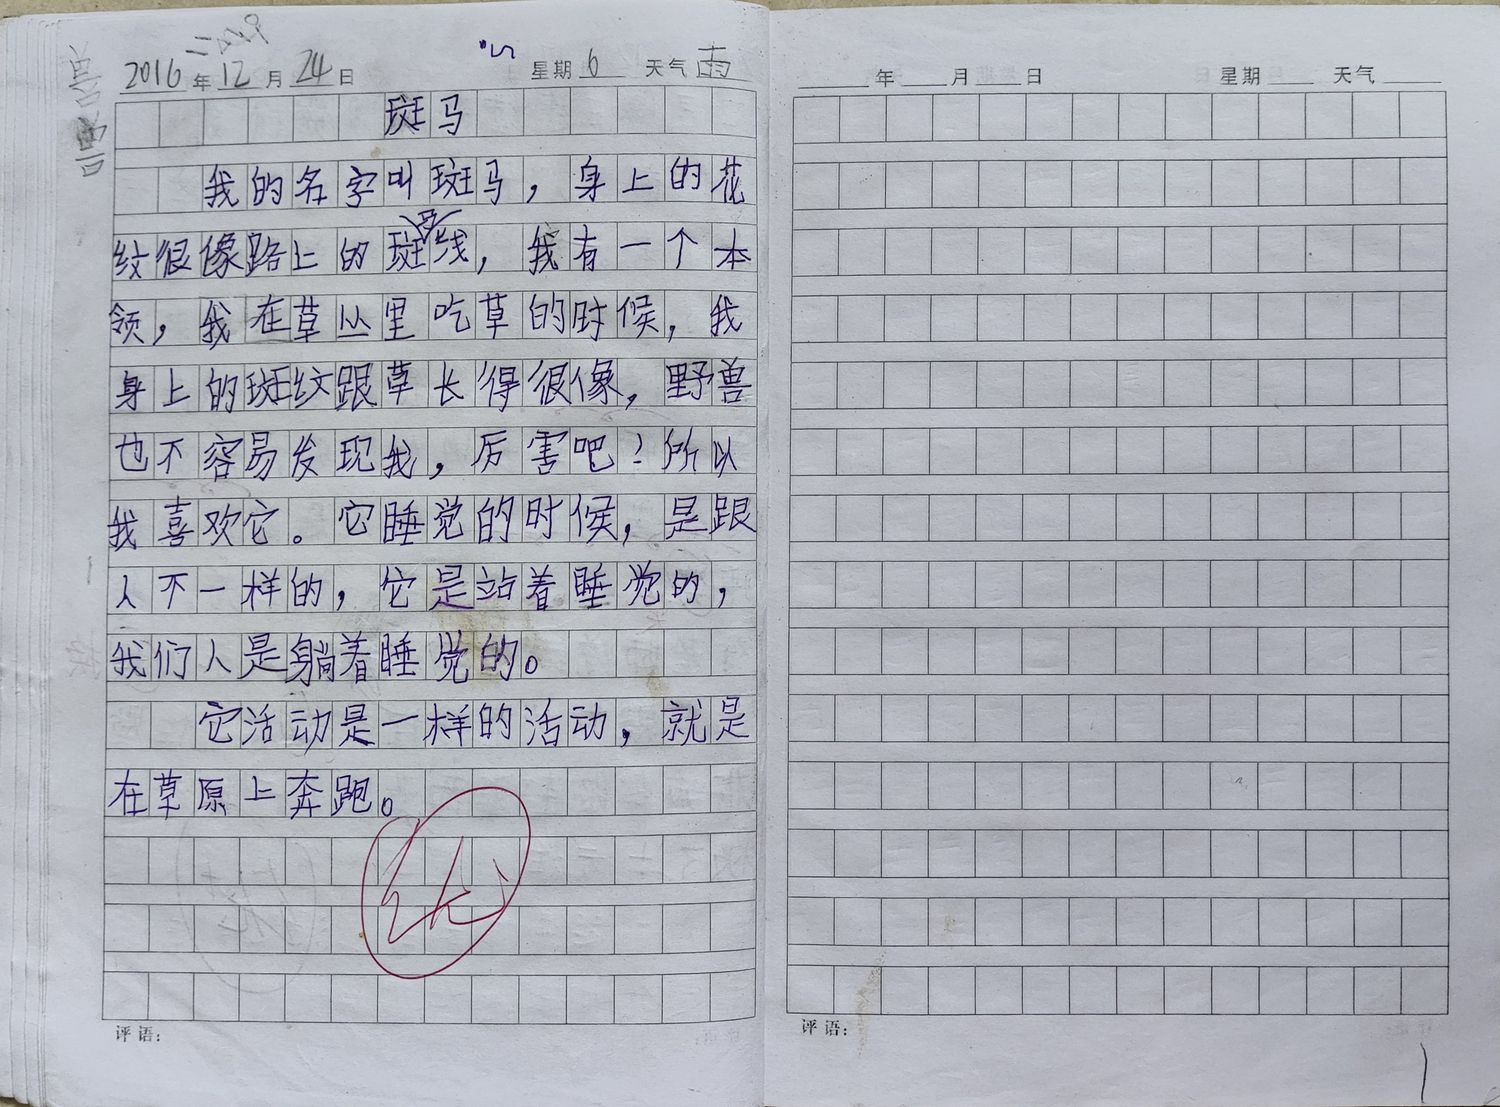 2016年12月24日 星期6 天气雨
斑马
我的名字叫斑马，身上的花
纹很像路上的斑马线，我有一个本
领，我在草丛里吃草的时候，我
身上的斑纹跟草长得很像，野兽
也不容易发现我，厉害吧！所以
我喜欢它。它睡觉的时候，是跟
人不一样的，它是站着睡觉的，
我们人是躺着睡觉的。
它活动是一样的活动，就是
在草原上奔跑。
优
评语：
年 月 日 星期 天气
评语：